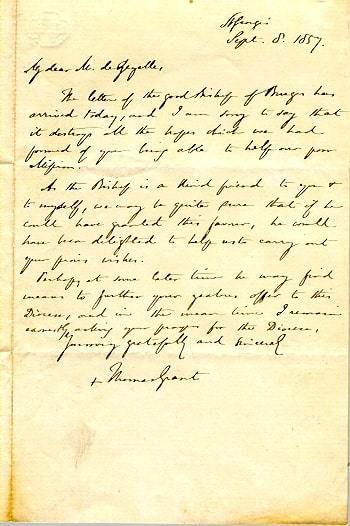 St Georges
Sept. 8. 1857.
My dear M. de Gezelle,
The letter of the good Bishop of Bruges has
arrived today, and I am sorry to say that
it destroys all the hopes which we had
formed of your being able to help our poor
Mission.
As the Bishop is a kind friend to you &
to myself, we may be quite sure that if he
could have granted this favour, he would
have been delighted to help us to carry out
your pious wishes.
Perhaps at some later time he may find
means to further your zealous offer to this
Diocese, and in the mean time I remain
earnestly asking your prayers for the Diocese,
Yours very gratefully and sincerely
+ Thomas Grant